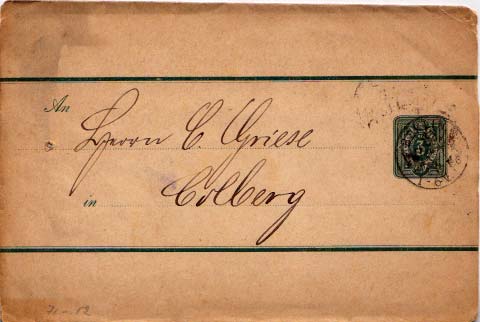 An
Herrn C. Griese
in
Colberg
3
71-52